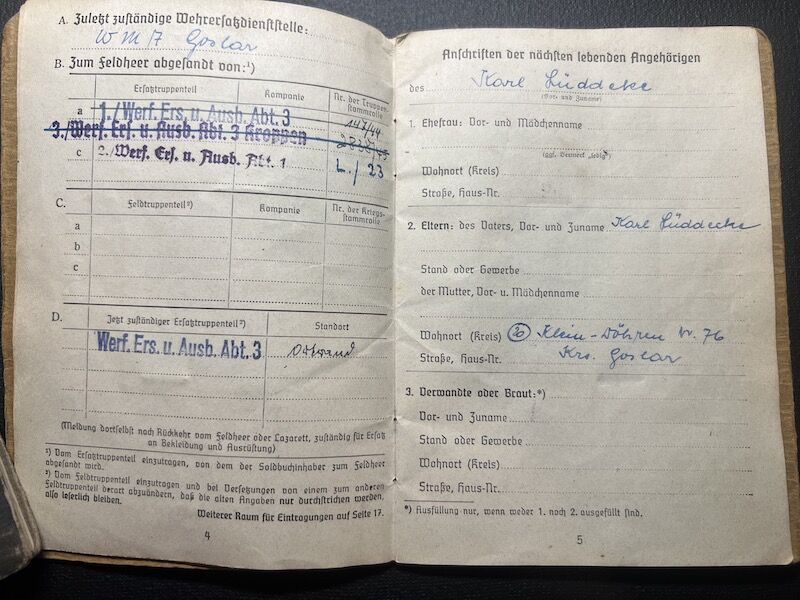 A. Zuletzt zuständige Wehrersatzdienststelle:
W M 7 Goslar
B. Zum Feldheer abgesandt von:¹)
Ersatztruppenteil Kompanie Nr. der Truppenstammrolle
a 1./Werf. Ers. u. Ausb. Abt. 3 147/44
3./Werf. Ers. u. Ausb. Abt. 3 Kroppen
c 2./Werf. Ers. u. Ausb. Abt. 1 L./23
C. Feldtruppenteil²) Kompanie Nr. der Kriegsstammrolle
a
b
c
D. Jetzt zuständiger Ersatztruppenteil²) Standort
Werf. Ers. u. Ausb. Abt. 3 Ortrand
(Meldung dortselbst nach Rückkehr vom Feldheer oder Lazarett, zuständig für Ersatz
an Bekleidung und Ausrüstung)
¹) Vom Ersatztruppenteil einzutragen, von dem der Soldbuchinhaber zum Feldheer
abgesandt wird.
²) Vom Feldtruppenteil einzutragen und bei Versetzungen von einem zum anderen
Feldtruppenteil derart abzuändern, daß die alten Angaben nur durchstrichen werden,
also leserlich bleiben.
Weiterer Raum für Eintragungen auf Seite 17.
4
Anschriften der nächsten lebenden Angehörigen
des Karl Lüddecke
(Vor- und Zuname)
1. Ehefrau: Vor- und Mädchenname
(ggf. Vermerk „ledig")
Wohnort (Kreis)
Straße, Haus-Nr.
2. Eltern: des Vaters, Vor- und Zuname Karl Lüddecke
Stand oder Gewerbe
der Mutter, Vor- u. Mädchenname
Wohnort (Kreis) (20) Klein-Döhren Nr. 76
Straße, Haus-Nr. Krs. Goslar
3. Verwandte oder Braut:*)
Vor- und Zuname
Stand oder Gewerbe
Wohnort (Kreis)
Straße, Haus-Nr.
*) Ausfüllung nur, wenn weder 1. noch 2. ausgefüllt sind.
5